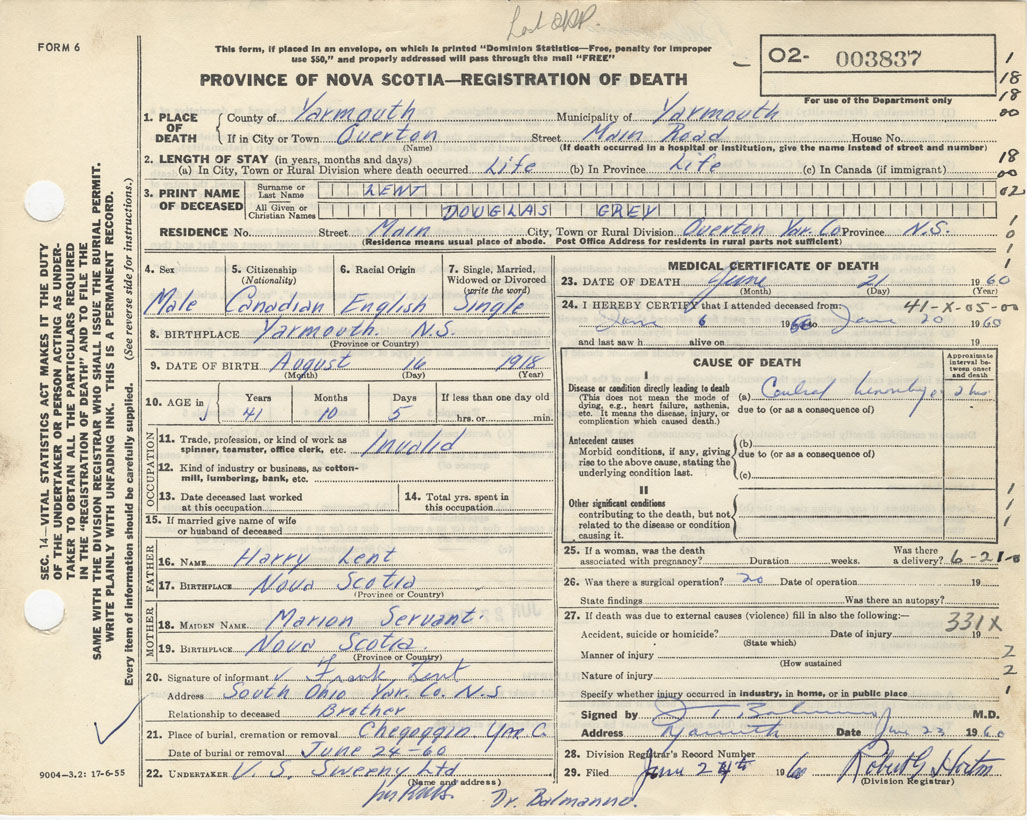 Lent
FORM 6
This form, if placed in an envelope, on which is printed "Dominion Statistics—Free, penalty for improper
use $50," and properly addressed will pass through the mail "FREE"
PROVINCE OF NOVA SCOTIA—REGISTRATION OF DEATH
02- 003837
For use of the Department only
SEC. 14—VITAL STATISTICS ACT MAKES IT THE DUTY
OF THE UNDERTAKER OR PERSON ACTING AS UNDER-
TAKER TO OBTAIN ALL THE PARTICULARS REQUIRED
IN THE "REGISTRATION OF DEATH" AND TO FILE THE
SAME WITH THE DIVISION REGISTRAR WHO SHALL ISSUE THE BURIAL PERMIT.
WRITE PLAINLY WITH UNFADING INK. THIS IS A PERMANENT RECORD.
Every item of information should be carefully supplied. (See reverse side for instructions.)
1. PLACE OF DEATH
County of Yarmouth Municipality of Yarmouth
If in City or Town Overton Street Main Road House No.
(Name) (If death occurred in a hospital or institution, give the name instead of street and number)
2. LENGTH OF STAY (in years, months and days)
(a) In City, Town or Rural Division where death occurred Life (b) In Province Life (c) In Canada (if immigrant)
3. PRINT NAME OF DECEASED
Surname or Last Name LENT
All Given or Christian Names DOUGLAS GREY
RESIDENCE No. Street Main City, Town or Rural Division Overton Yar. Co Province N.S.
(Residence means usual place of abode. Post Office Address for residents in rural parts not sufficient)
1
18
18
00
18
00
02
1
0
1
1
4. Sex Male
5. Citizenship (Nationality) Canadian
6. Racial Origin English
7. Single, Married, Widowed or Divorced (write the word) Single
8. BIRTHPLACE Yarmouth N.S.
(Province or Country)
9. DATE OF BIRTH August 16 1918
(Month) (Day) (Year)
10. AGE in Years 41 Months 10 Days 5 If less than one day
hrs. or min.
OCCUPATION
11. Trade, profession, or kind of work as
spinner, teamster, office clerk, etc. Invalid
12. Kind of industry or business, as cotton-
mill, lumbering, bank, etc.
13. Date deceased last worked
at this occupation
14. Total yrs. spent in
this occupation
15. If married give name of wife
or husband of deceased
FATHER
16. NAME Harry Lent
17. BIRTHPLACE Nova Scotia
(Province or Country)
MOTHER
18. MAIDEN NAME Marion Servant.
19. BIRTHPLACE Nova Scotia
(Province or Country)
20. Signature of informant Frank Lent
Address South Ohio Yar. Co. N.S
Relationship to deceased Brother
21. Place of burial, cremation or removal Chegoggin Yar. C.
Date of burial or removal June 24-60
22. UNDERTAKER V. S. Sweeny Ltd
(Name and address)
Dr. Balmanno.
9004—3.2: 17-6-55
MEDICAL CERTIFICATE OF DEATH
23. DATE OF DEATH June 21 1960
(Month) (Day) (Year)
24. I HEREBY CERTIFY that I attended deceased from: 41-X-05-00
June 6 1960 to June 20 1960
and last saw h alive on 19
CAUSE OF DEATH
Approximate interval between onset and death
I
Disease or condition directly leading to death
(This does not mean the mode of
dying, e.g., heart failure, asthenia,
etc. It means the disease, injury, or
complication which caused death.)
(a) 2 hrs
due to (or as a consequence of)
Antecedent causes
Morbid conditions, if any, giving
rise to the above cause, stating the
underlying condition last.
(b)
due to (or as a consequence of)
(c)
II
Other significant conditions
contributing to the death, but not
related to the disease or condition
causing it.
1
1
1
25. If a woman, was the death
associated with pregnancy? Duration weeks.
Was there
a delivery? 6-21-0
26. Was there a surgical operation? no Date of operation 19
State findings Was there an autopsy?
27. If death was due to external causes (violence) fill in also the following:— 331X
Accident, suicide or homicide? Date of injury 19
(State which)
Manner of injury 2
(How sustained
Nature of injury 2
Specify whether injury occurred in industry, in home, or in public place 1
Signed by M.D.
Address Yarmouth Date June 23 1960
28. Division Registrar's Record Number
29. Filed June 24th 1960 Robert G Horton
(Division Registrar)